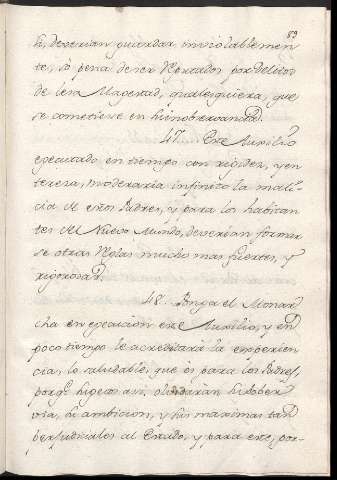 89
se, deverian guardar inviolablemen-
te, só pena de ser Reputados por delitos
de lesa Magestad, qualesquiera, que
se cometiese en su inobservancia.
47. Este Auxilio
executado en tiempo con rigidez, y en
tereza, moderaria infinito la mali
cia de estos Padres, y para los habitan
tes del Nuevo Mundo, deverian formar
se otras Reglas mucho mas fuertes, y
rigorosas.
48. Ponga el Monar
cha en execucion este Auxilio, y en
poco tiempo le acreditará la experien
cia, lo saludable, que es para los Padres,
porq.e luego asi, olvidarán su sober
via, su ambicion, y sus maximas tan
perjudiciales al Estado, y para este, por-